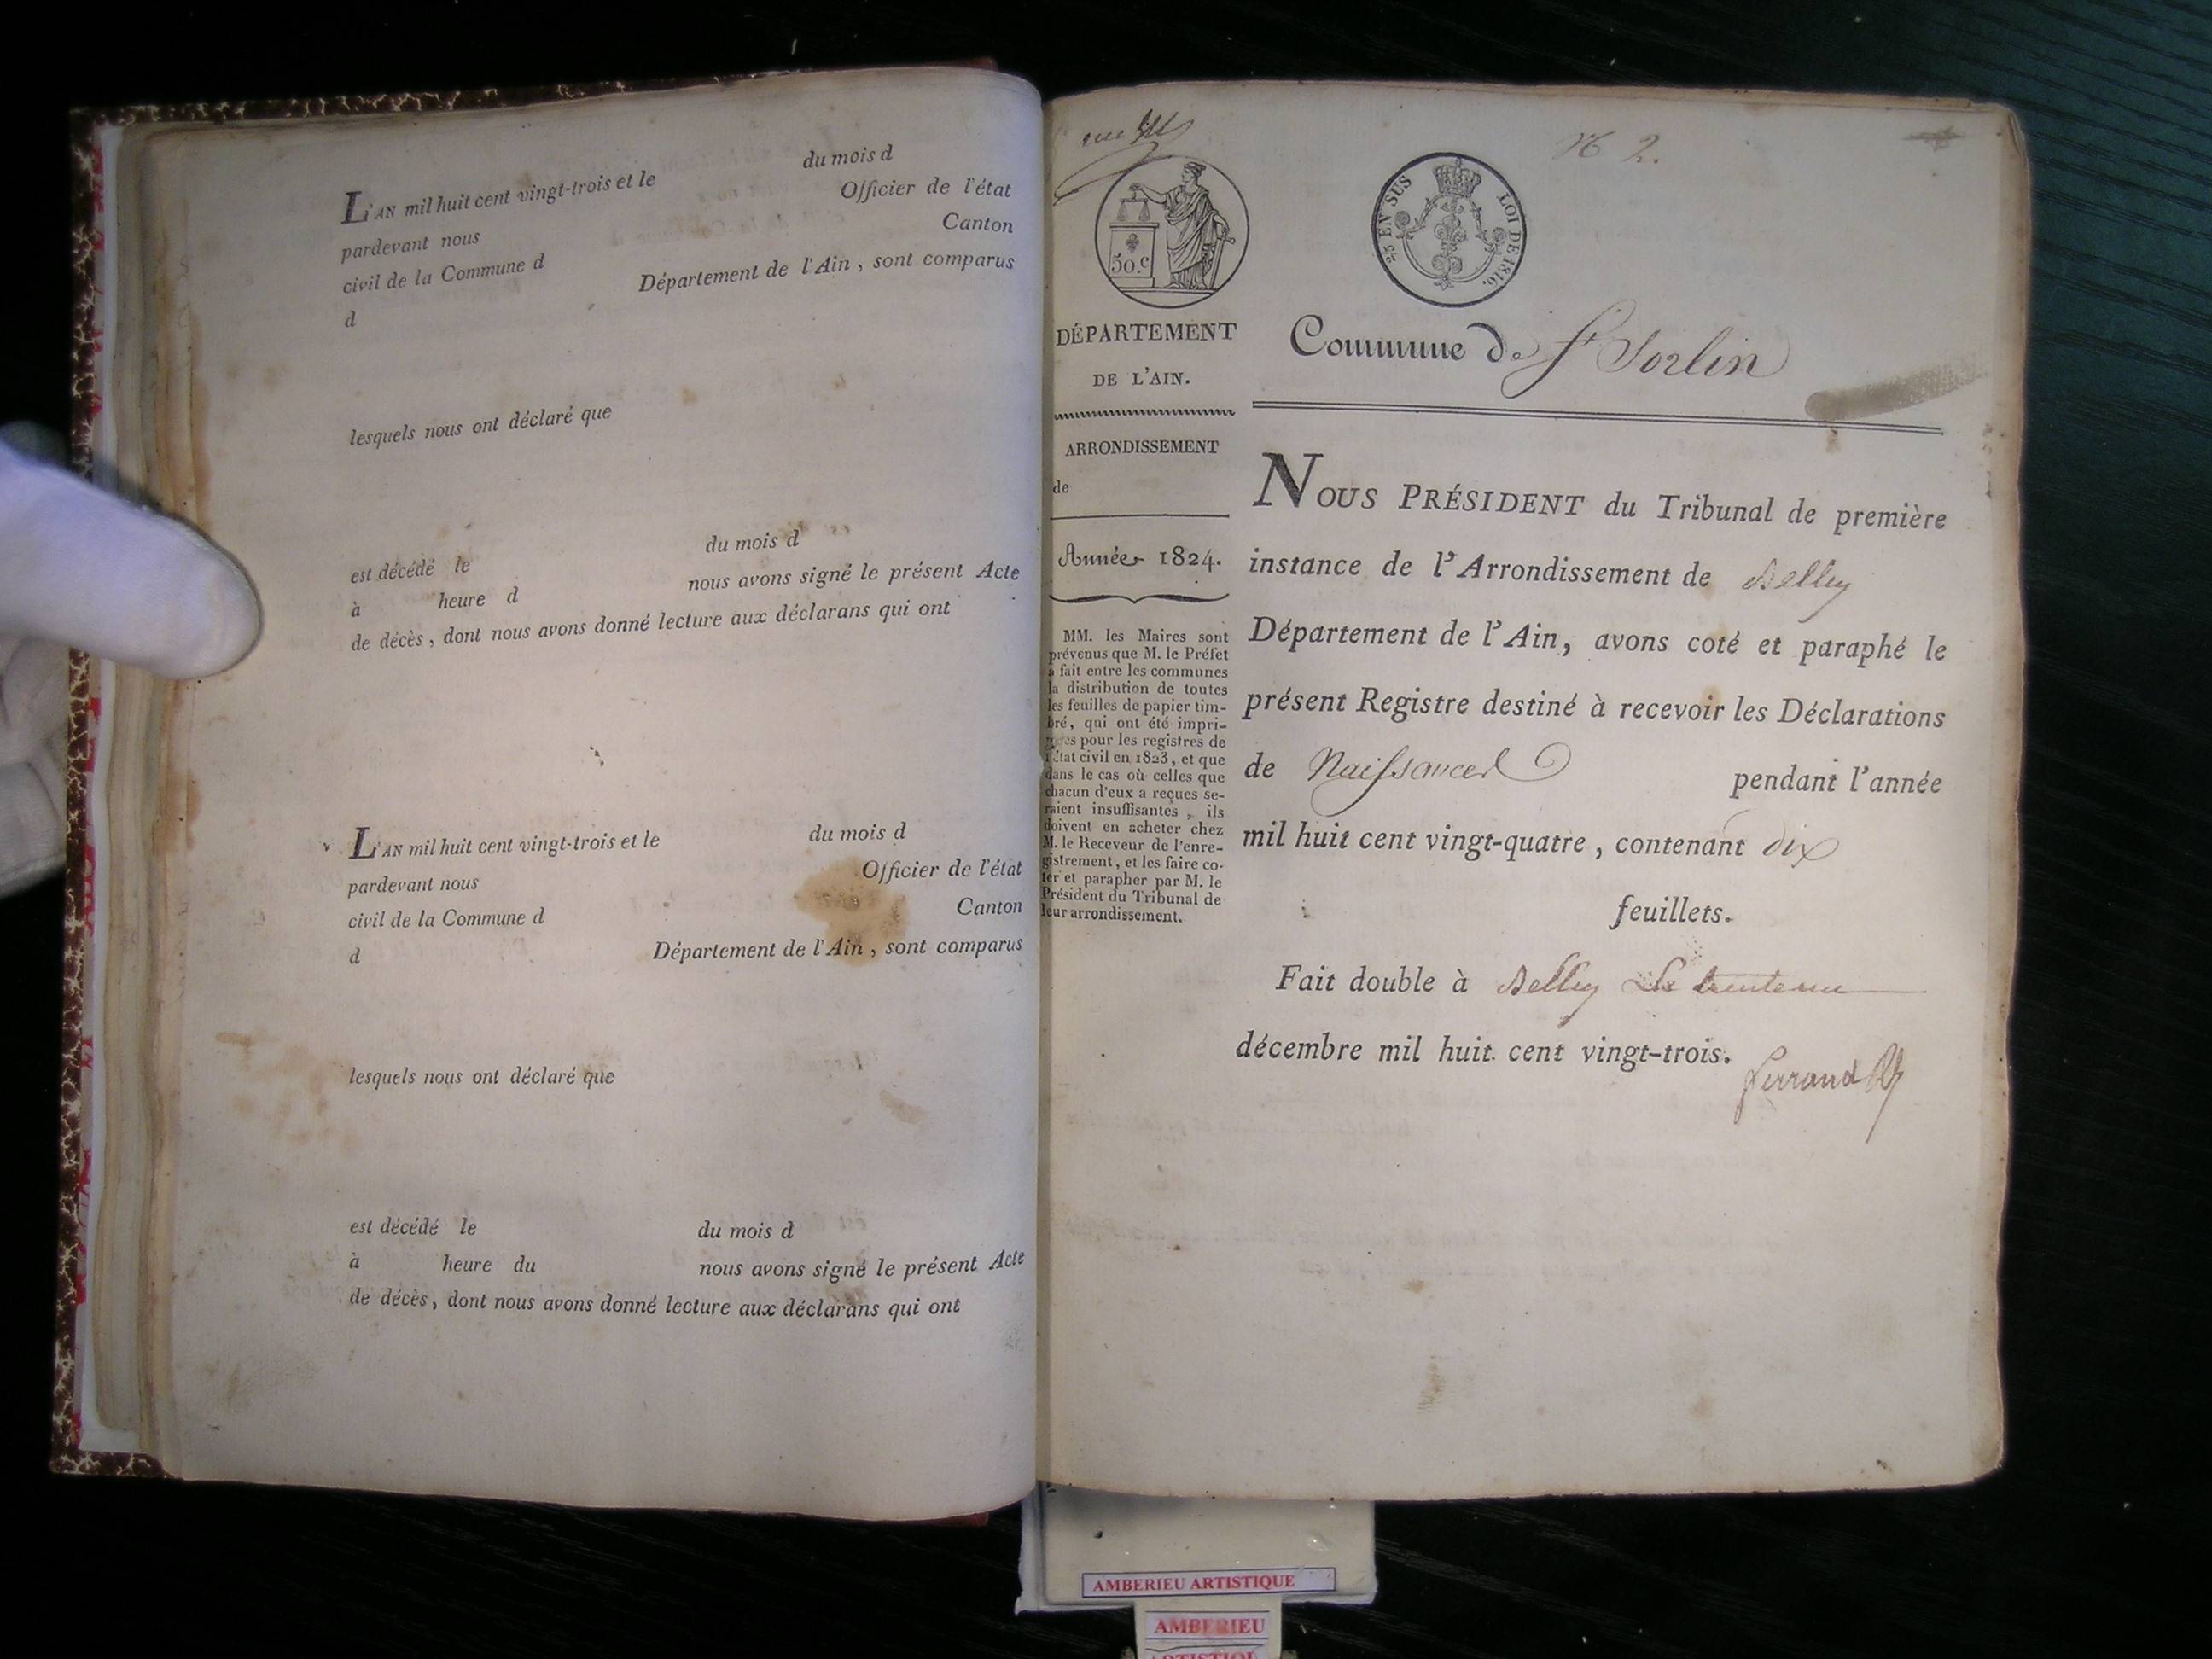 du mois d
L'AN mil huit cent vingt-trois et le
Officier de l'état
pardevant nous
Canton
civil de la Commune d
Département de l'Ain, sont comparus
d
lesquels nous ont déclaré que
du mois d
est décédé le
nous avons signé le présent Acte
à heure d
de décès, dont nous avons donné lecture aux déclarans qui ont
L'AN mil huit cent vingt-trois et le du mois d
pardevant nous Officier de l'état
civil de la Commune d Canton
d Département de l'Ain, sont comparus
lesquels nous ont déclaré que
est décédé le du mois d
à heure du nous avons signé le présent Acte
de décès, dont nous avons donné lecture aux déclarans qui ont
50.c
25 EN SUS LOI DE 1816.
N° 2.
DÉPARTEMENT
DE L'AIN.
ARRONDISSEMENT
de
Année 1824.
MM. les Maires sont
prévenus que M. le Préfet
a fait entre les communes
la distribution de toutes
les feuilles de papier tim-
bré, qui ont été impri-
mées pour les registres de
l'état civil en 1823, et que
dans le cas où celles que
chacun d'eux a reçues se-
raient insuffisantes, ils
doivent en acheter chez
M. le Receveur de l'enre-
gistrement, et les faire co-
ter et parapher par M. le
Président du Tribunal de
leur arrondissement.
Commune de St Sorlin
NOUS PRÉSIDENT du Tribunal de première
instance de l'Arrondissement de Belley
Département de l'Ain, avons coté et paraphé le
présent Registre destiné à recevoir les Déclarations
de Naissances pendant l'année
mil huit cent vingt-quatre, contenant dix
feuillets.
Fait double à Belley Le trente un
décembre mil huit cent vingt-trois.
Ferrand
AMBERIEU ARTISTIQUE
AMBERIEU
ARTISTIQUE